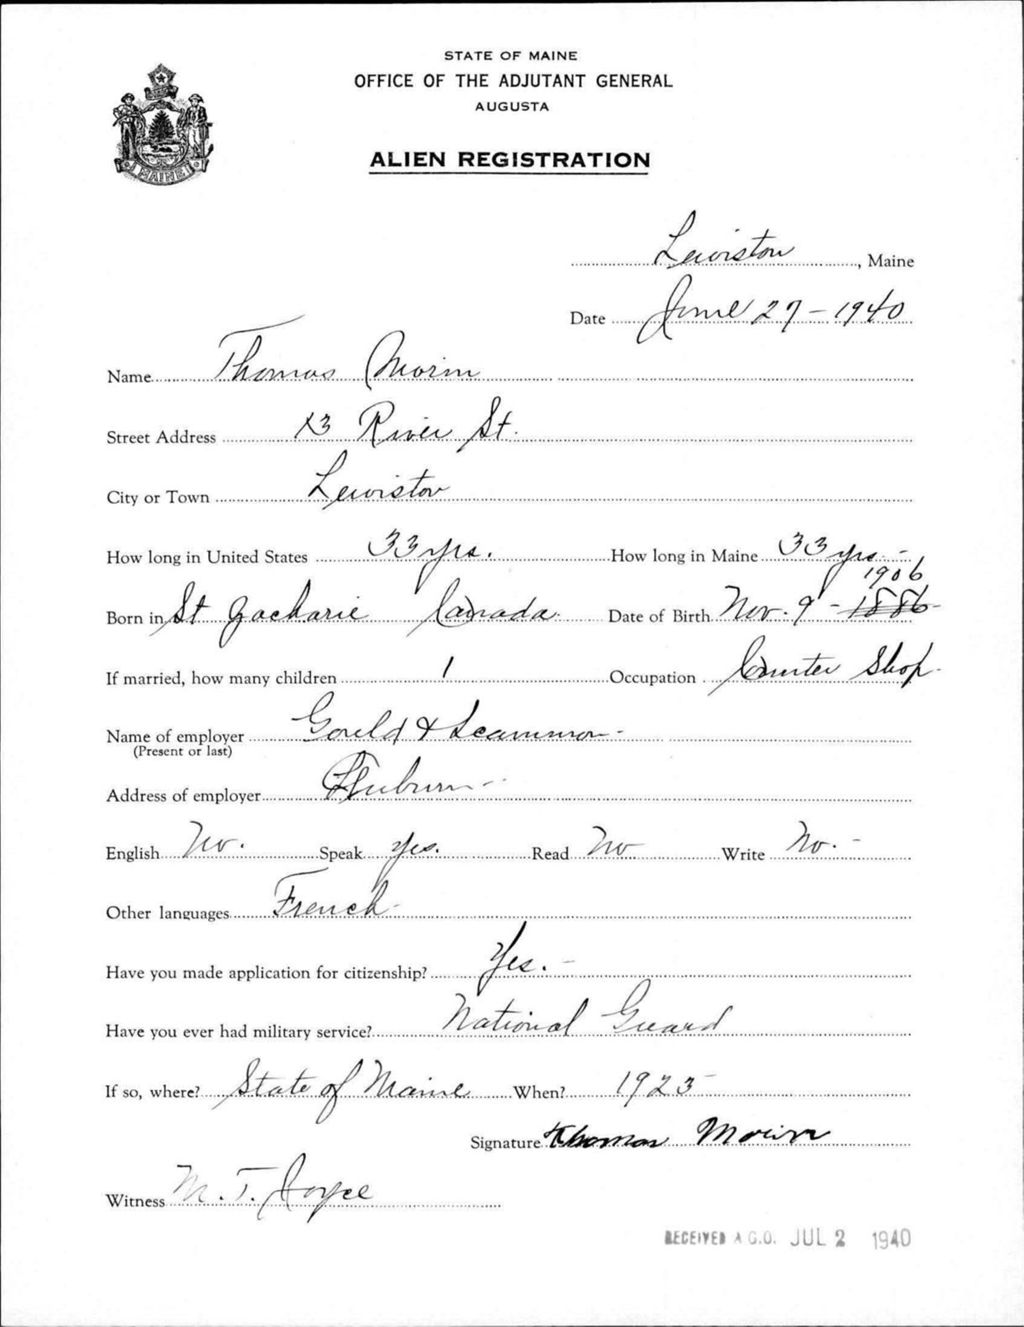 STATE OF MAINE
OFFICE OF THE ADJUTANT GENERAL
AUGUSTA
ALIEN REGISTRATION
MAINE
Lewiston, Maine
Date June 27-1940
Name Thomas Morin
Street Address 13 River St.
City or Town Lewiston
How long in United States 33 yrs. How long in Maine 33 yrs-
1906
Born in St Zacharie Canada. Date of Birth Nov. 9- 1886-
If married, how many children 1 Occupation Counter Shop-
Name of employer Gould & Scammon-
(Present or last)
Address of employer Auburn-
English No. Speak Yes. Read No Write No.-
Other languages French-
Have you made application for citizenship? Yes.-
Have you ever had military service? National Guard
If so, where? State of Maine When? 1923
Signature Thomas Morin
Witness M.T. Joyce
RECEIVED A.G.O. JUL 2 1940